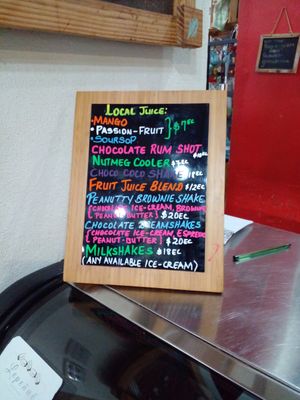 LOCAL JUICE:
• MANGO
• PASSION-FRUIT } $7EC
• SOURSOP
CHOCOLATE RUM SHOT
NUTMEG COOLER
CHOCO COCO SHAKE
FRUIT JUICE BLEND $12EC
PEANUTTY BROWNIE SHAKE
(CHOCOLATE ICE-CREAM, BROWNIE
PEANUT-BUTTER) $20EC
CHOCOLATE DREAMSHAKES
(CHOCOLATE ICE-CREAM, ESPRESSO
PEANUT-BUTTER) $20EC
MILKSHAKES $18EC
(ANY AVAILABLE ICE-CREAM)